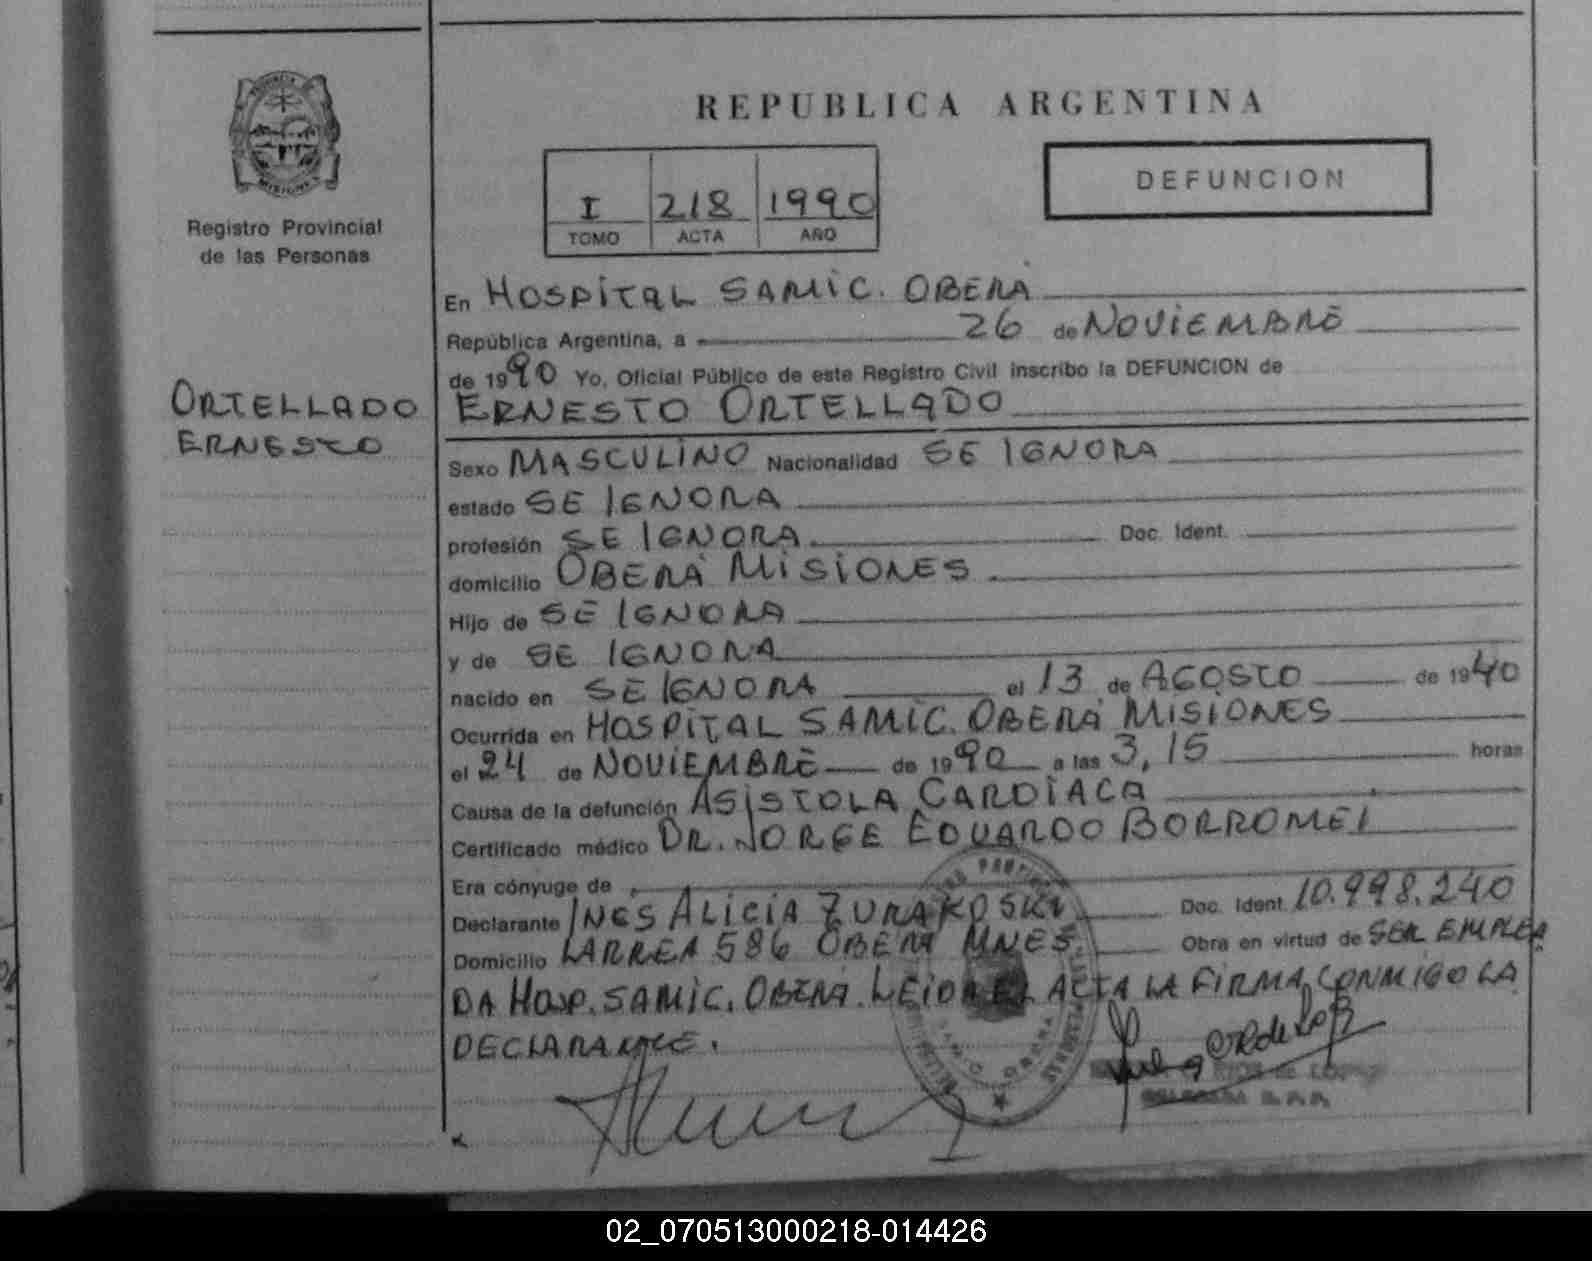 PROVINCIA
MISIONES
Registro Provincial
de las Personas
ORTELLADO
ERNESTO
REPUBLICA ARGENTINA
I 218 1990
TOMO ACTA AÑO
DEFUNCION
En HOSPITAL SAMIC. OBERÁ
República Argentina, a 26 de NOVIEMBRE
de 1990 Yo, Oficial Público de este Registro Civil inscribo la DEFUNCION de
ERNESTO ORTELLADO
Sexo MASCULINO Nacionalidad SE IGNORA
estado SE IGNORA
profesión SE IGNORA Doc. Ident.
domicilio OBERÁ MISIONES
Hijo de SE IGNORA
y de SE IGNORA
nacido en SE IGNORA el 13 de AGOSTO de 1940
Ocurrida en HOSPITAL SAMIC. OBERÁ MISIONES
el 24 de NOVIEMBRE de 1990 a las 3,15 horas
Causa de la defunción ASISTOLA CARDIACA
Certificado médico DR. JORGE EDUARDO BORROMEI
Era cónyuge de
Declarante INES ALICIA ZURAKOSKI Doc. Ident. 10.998.240
Domicilio LARREA 586 OBERA MNES Obra en virtud de SER EMPLEA
DA HOSP. SAMIC. OBERÁ. LEIDA EL ACTA LA FIRMA CONMIGO LA
DECLARANTE.
SAMIC OBERA
RIOS DE LOPEZ
DELEGADA R.P.P.
02_070513000218-014426